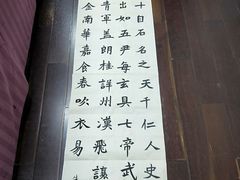 十目石名之天千仁人史
出如五尹每玄具七帝武
青軍盖朗桂詳州漢飛讓
金南華嘉食春吹衣易